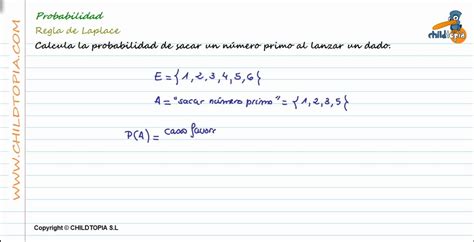 Probabilidad
Regla de Laplace
Calcula la probabilidad de sacar un número primo al lanzar un dado.
E = {1, 2, 3, 4, 5, 6}
A = "sacar número primo" = {1, 2, 3, 5}
P(A) = casos favor
childtopia
WWW.CHILDTOPIA.COM
Copyright © CHILDTOPIA S.L